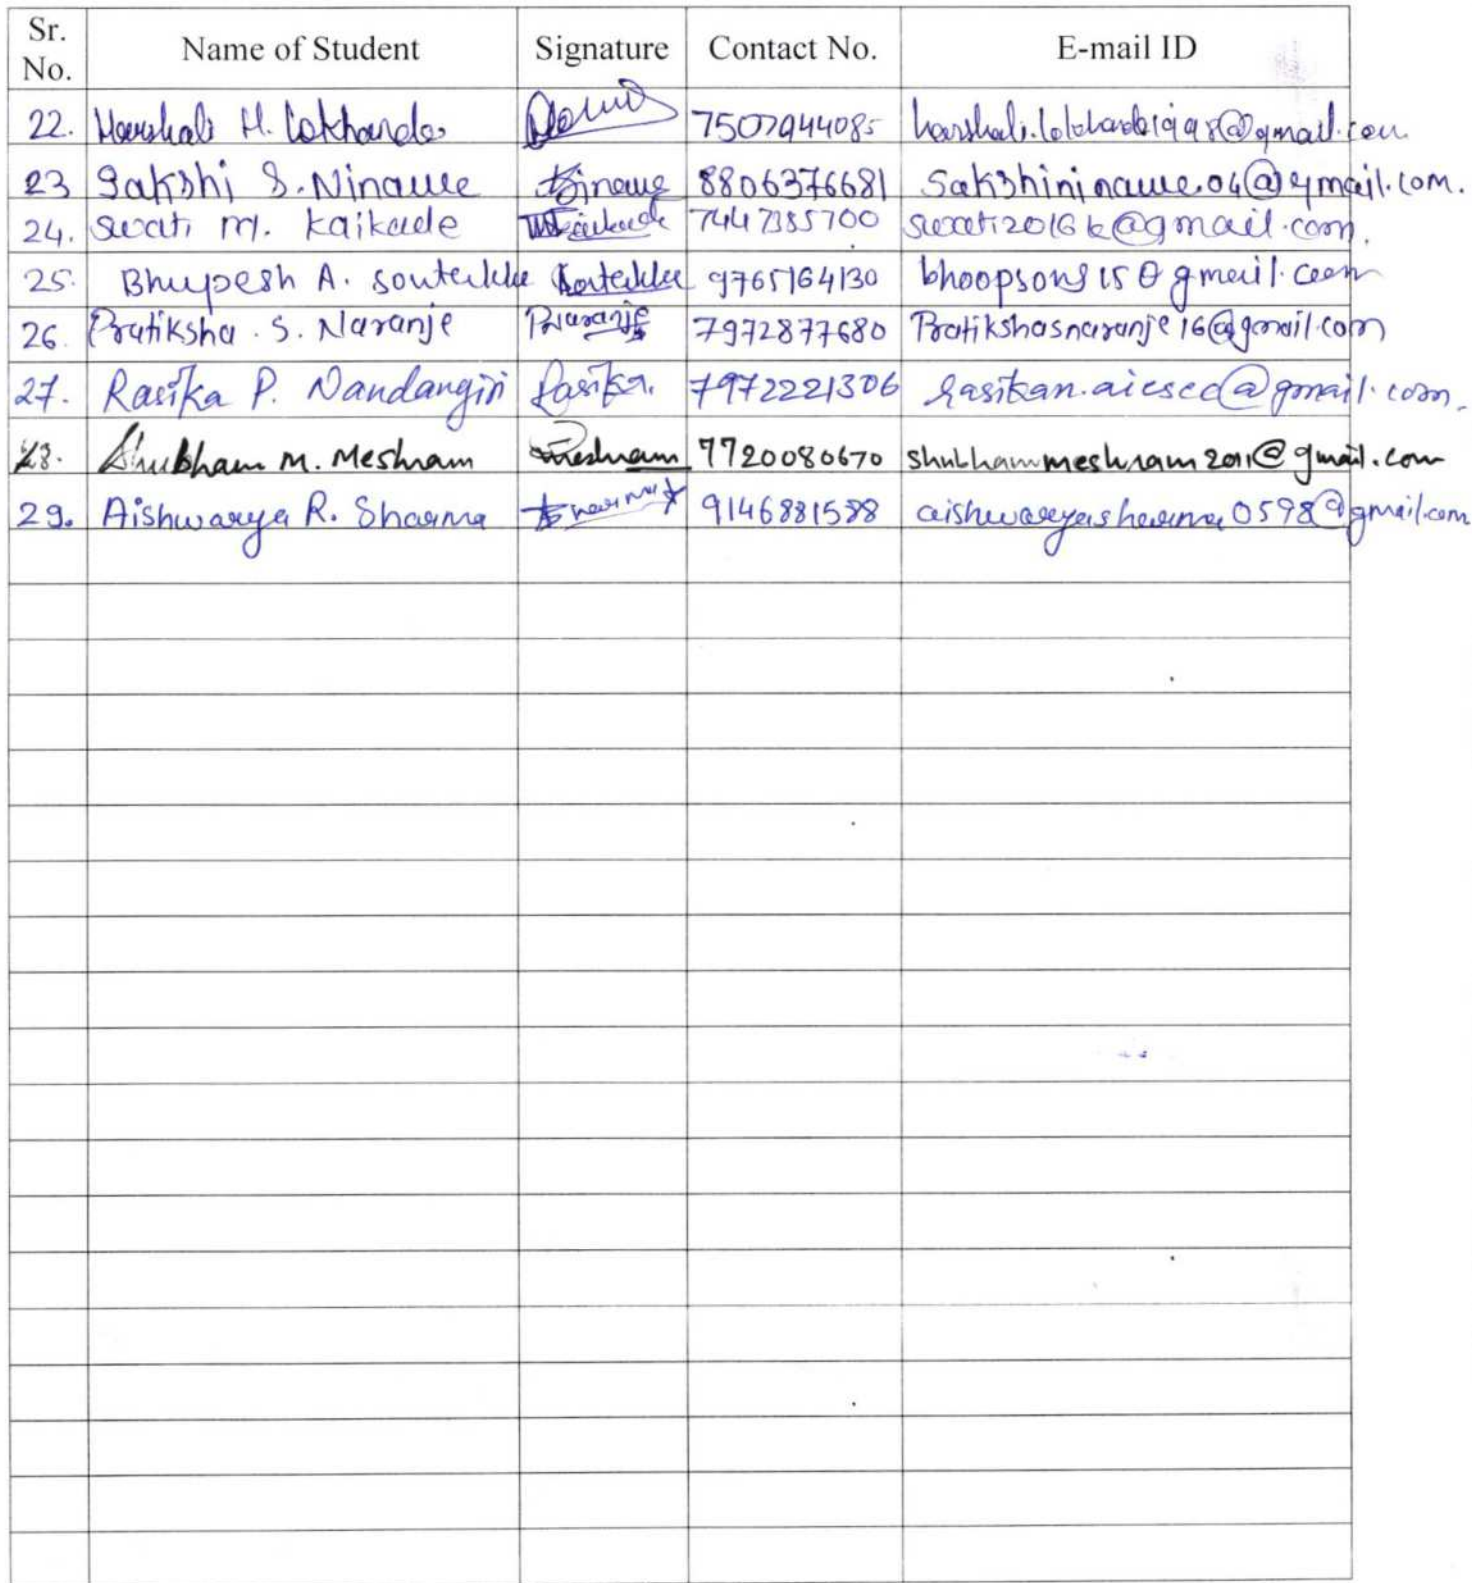 Sr. No. Name of Student Signature Contact No. E-mail ID
22. Harshali H. Lokhande 7507944085 harshali.lokhande1998@gmail.com
23 Sakshi S. Ninawe Ninawe 8806376681 Sakshininawe.04@gmail.com.
24. Swati M. Kaikade Kaikade 7447385700 swati2016k@gmail.com.
25. Bhupesh A. Sontakke Sontakke 9765164130 bhoopsong15@gmail.com
26. Pratiksha . S. Naranje PNaranje 7972877680 Pratikshasnaranje16@gmail.com
27. Rasika P. Nandangiri Rasika. 7972221306 rasikan.aicscc@gmail.com.
28. Shubham M. Meshram Meshram 7720080670 shubhammeshram2011@gmail.com
29. Aishwarya R. Sharma Sharma 9146881588 aishwaryasharma0598@gmail.com